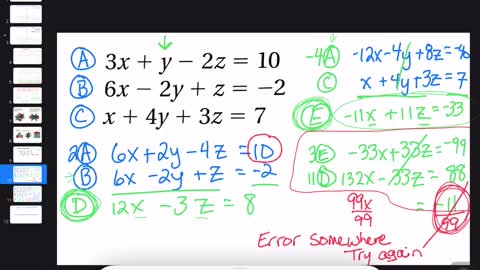 Ⓐ 3x + y − 2z = 10
Ⓑ 6x − 2y + z = −2
Ⓒ x + 4y + 3z = 7
2Ⓐ 6x + 2y − 4z = 10
Ⓑ 6x − 2y + z = −2
Ⓓ 12x − 3z = 8
-4Ⓐ -12x - 4y + 8z = -40
Ⓒ x + 4y + 3z = 7
Ⓔ -11x + 11z = -33
3Ⓔ -33x + 33z = -99
11Ⓓ 132x - 33z = 88
99x = -11
99 99
Error somewhere
Try again